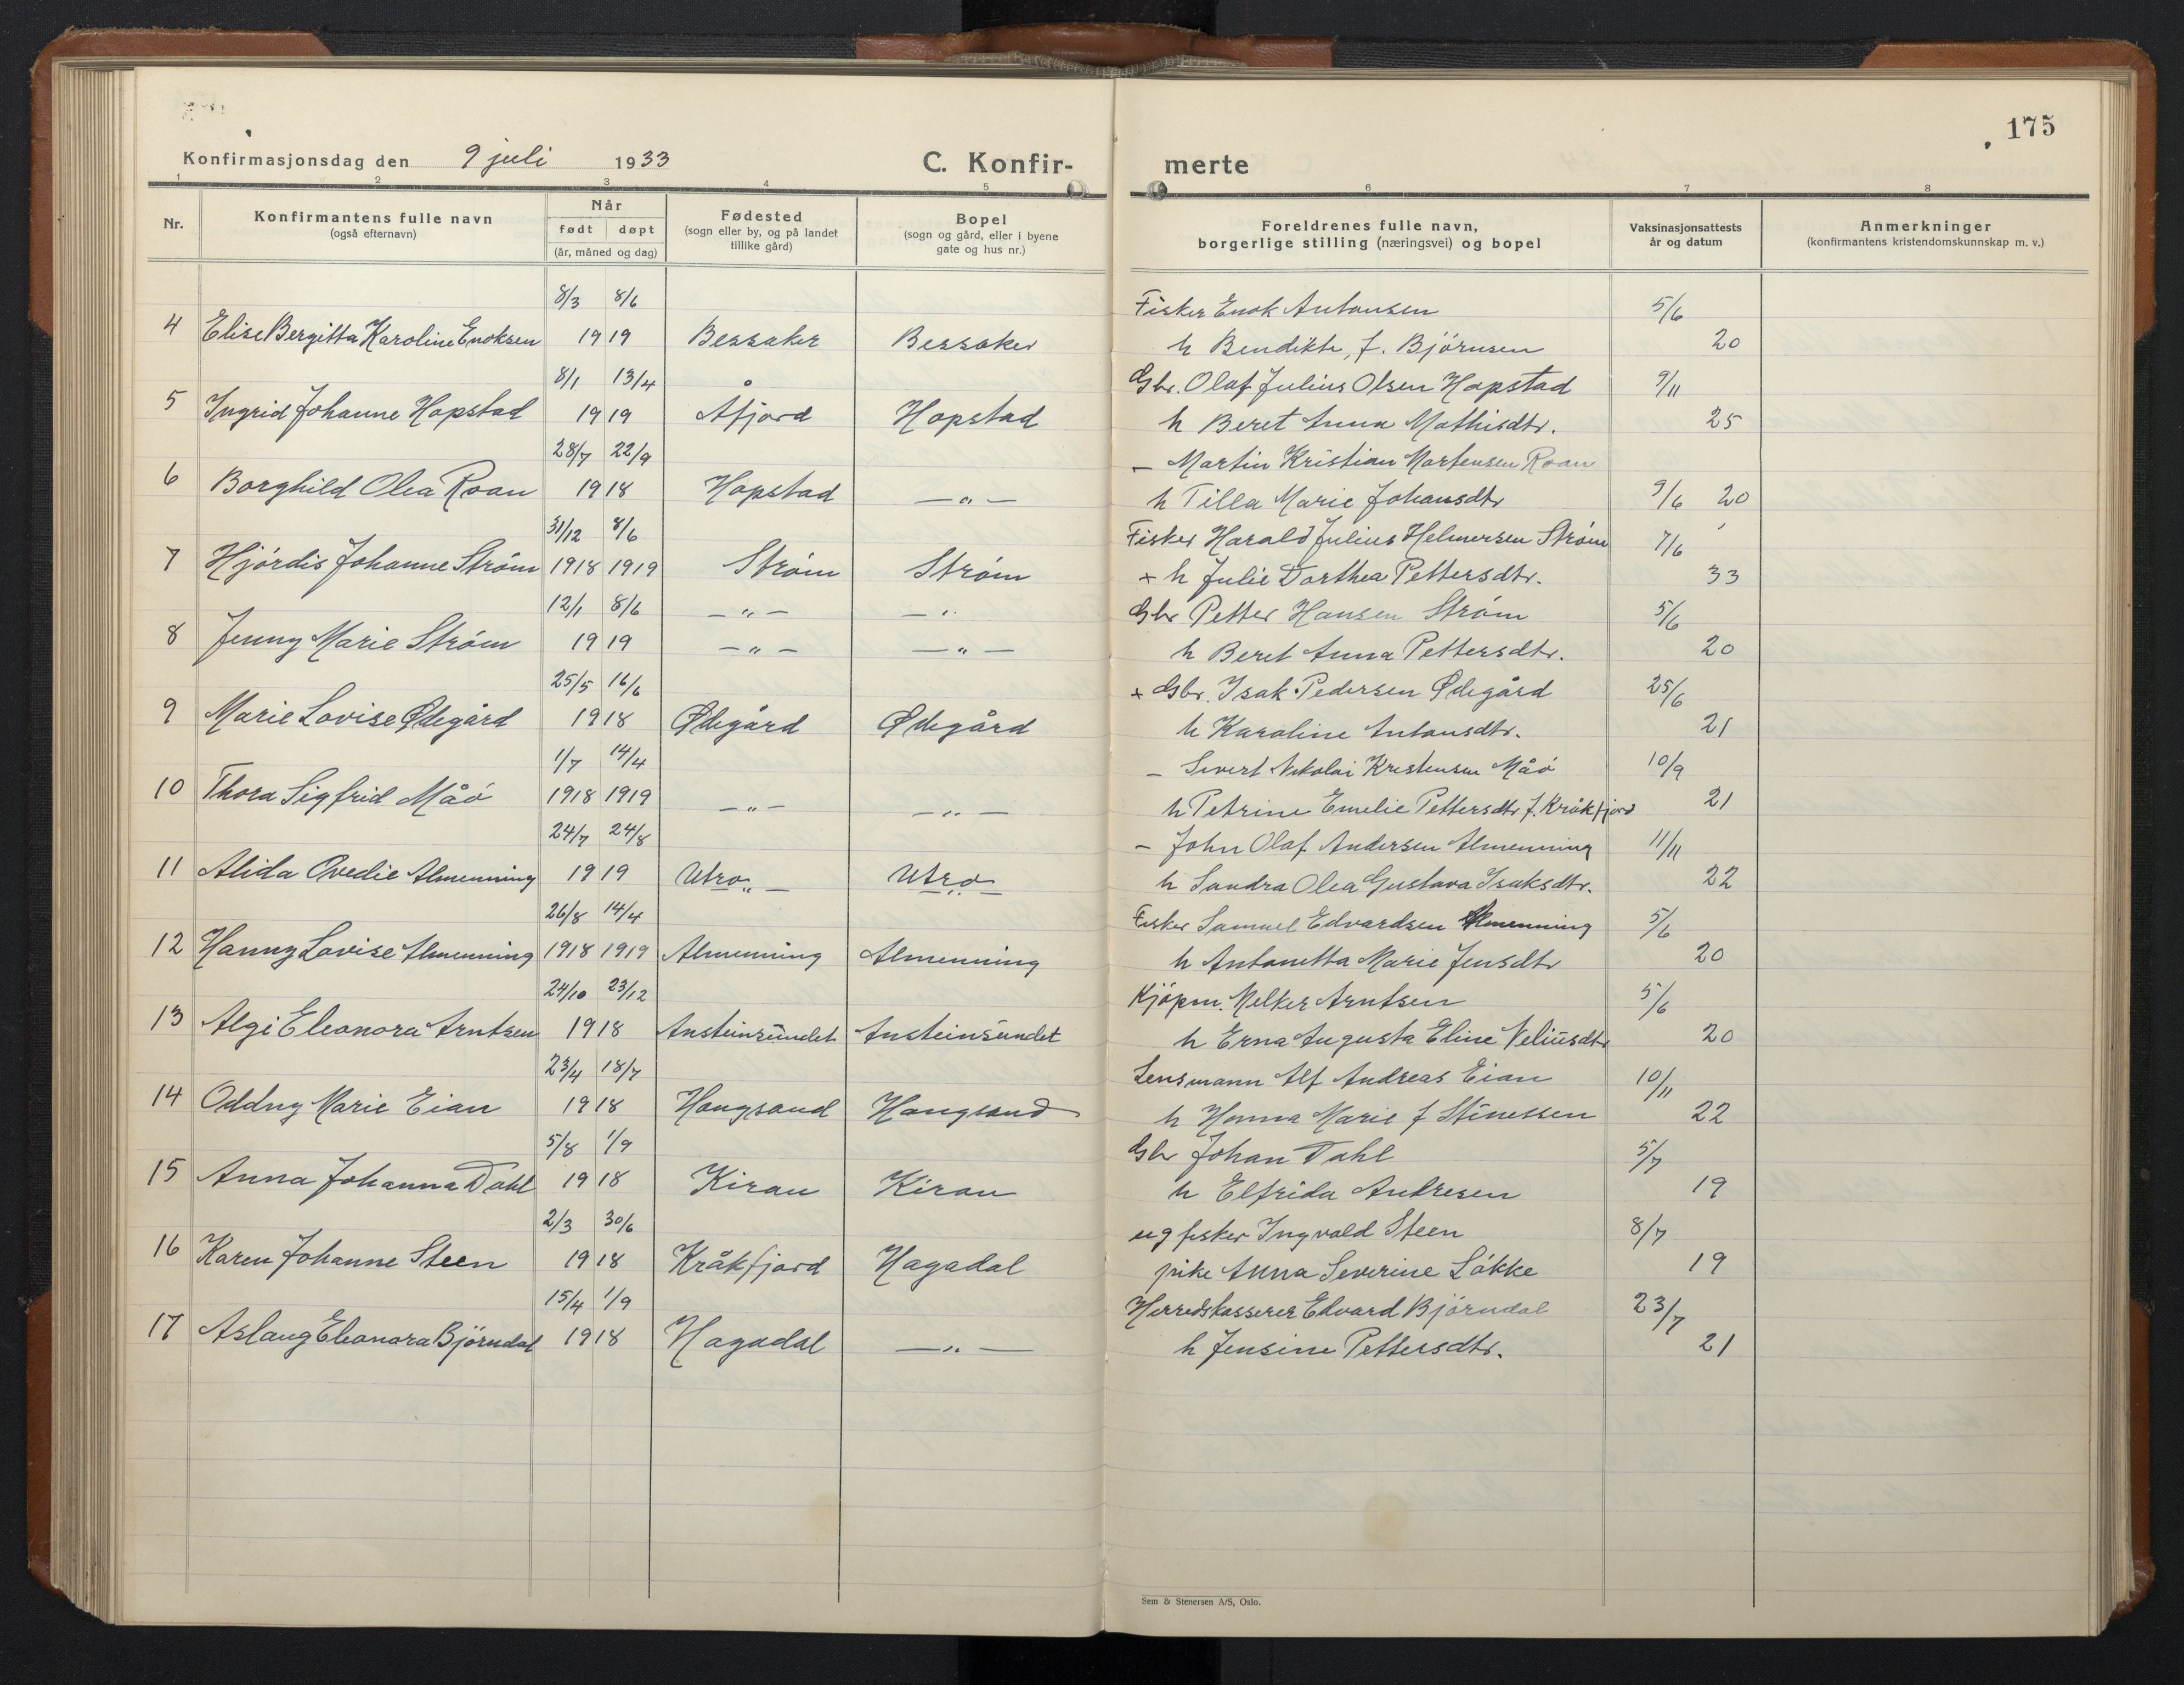 175
Konfirmasjonsdag den 9 juli 1933 C. Konfir- merte
1 2 3 4 5 6 7 8
Nr. Konfirmantens fulle navn (også efternavn) Når født døpt (år, måned og dag) Fødested (sogn eller by, og på landet tillike gård) Bopel (sogn og gård, eller i byene gate og hus nr.) Foreldrenes fulle navn, borgerlige stilling (næringsvei) og bopel Vaksinasjonsattests år og datum Anmerkninger (konfirmantens kristendomskunnskap m. v.)
8/3 8/6 Fisker Enok Antonsen 5/6
4 Elise Bergitta Karoline Enoksen 1919 Bessaker Bessaker h Bendikte, f. Bjørnsen 20
8/1 13/4 Gbr. Olaf Julius Olsen Hopstad 9/11
5 Ingrid Johanne Hopstad 1919 Åfjord Hopstad h Beret Anna Mathisdtr. 25
28/7 22/9 – Martin Kristian Mortensen Roan
6 Borghild Olea Roan 1918 Hopstad —"— h Tilla Marie Johansdtr 9/6 20
31/12 8/6 Fisker Harald Julius Helmersen Strøm 7/6
7 Hjørdis Johanne Strøm 1918 1919 Strøm Strøm + h Julie Dorthea Pettersdtr. 33
12/1 8/6 —"— —" Gbr Petter Hansen Strøm 5/6
8 Jenny Marie Strøm 1919 —"— —"— h Beret Anna Pettersdtr. 20
25/5 16/6 + Gbr. Isak Pedersen Ødegård 25/6
9 Marie Lovise Ødegård 1918 Ødegård Ødegård h Karoline Antonsdtr. 21
1/7 14/4 – Sivert Nikolai Kristensen Måø 10/9
10 Thora Sigfrid Måø 1918 1919 —"— —"— h Petrine Emelie Pettersdtr f. Kråkfjord 21
24/7 24/8 – John Olaf Andersen Almenning 11/11
11 Alida Ovedie Almenning 1919 Utro —"— Utro —"— h Sandra Olea Gustava Isaksdtr. 22
26/8 14/4 Fisker Samuel Edvardsen Almenning 5/6
12 Hanny Lovise Almenning 1918 1919 Almenning Almenning h Antonetta Marie Jensdtr 20
24/10 23/12 Kjøpm. Melker Arntsen 5/6
13 Algi Eleonora Arntsen 1918 Ansteinsundet Ansteinsundet h Erna Augusta Eline Veliusdtr 20
23/4 18/7 Lensmann Alf Andreas Eian 10/11
14 Oddny Marie Eian 1918 Hongsand Hongsand h Hanna Marie f Stinessen 22
5/8 1/9 Gbr Johan Dahl 5/7
15 Anna Johanna Dahl 1918 Kiran Kiran h Elfrida Andresen 19
2/3 30/6 ug fisker Ingvald Steen 8/7
16 Karen Johanne Steen 1918 Kråkfjord Hagadal pike Anna Severine Løkke 19
15/4 1/9 Herredskasserer Edvard Bjørndal 23/7
17 Aslaug Eleonora Bjørndal 1918 Hagadal —"— h Jensine Pettersdtr. 21
Sem & Stenersen A/S, Oslo.